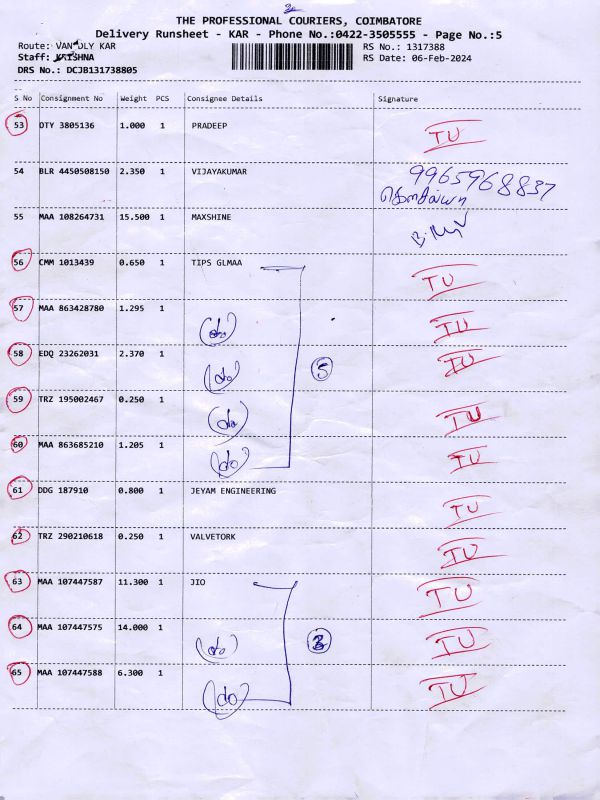 THE PROFESSIONAL COURIERS, COIMBATORE
Delivery Runsheet - KAR - Phone No.:0422-3505555 - Page No.:5
Route: VAN DLY KAR
RS No.: 1317388
Staff: KRISHNA
RS Date: 06-Feb-2024
DRS No.: DCJB131738805
S No Consignment No Weight PCS Consignee Details Signature
53 DTY 3805136 1.000 1 PRADEEP TU
54 BLR 4450508150 2.350 1 VIJAYAKUMAR 9965968837
55 MAA 108264731 15.500 1 MAXSHINE
56 CMM 1013439 0.650 1 TIPS GLMAA TU
57 MAA 863428780 1.295 1 (do) TU
58 EDQ 23262031 2.370 1 (do) 5 TU
59 TRZ 195002467 0.250 1 (do) TU
60 MAA 863685210 1.205 1 (do) TU
61 DDG 187910 0.800 1 JEYAM ENGINEERING TU
62 TRZ 290210618 0.250 1 VALVETORK TU
63 MAA 107447587 11.300 1 JIO TU
64 MAA 107447575 14.000 1 (do) 3 TU
65 MAA 107447588 6.300 1 (do) TU